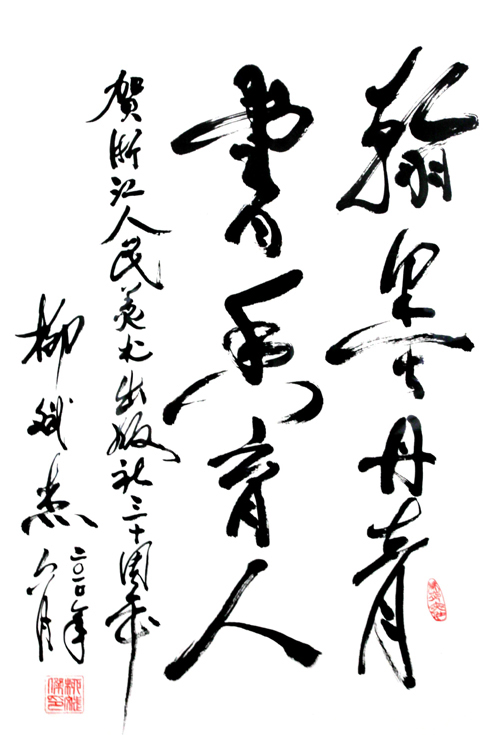 翰墨丹青
書香育人
賀浙江人民美术出版社三十周年
柳斌杰
二〇一〇年
六月